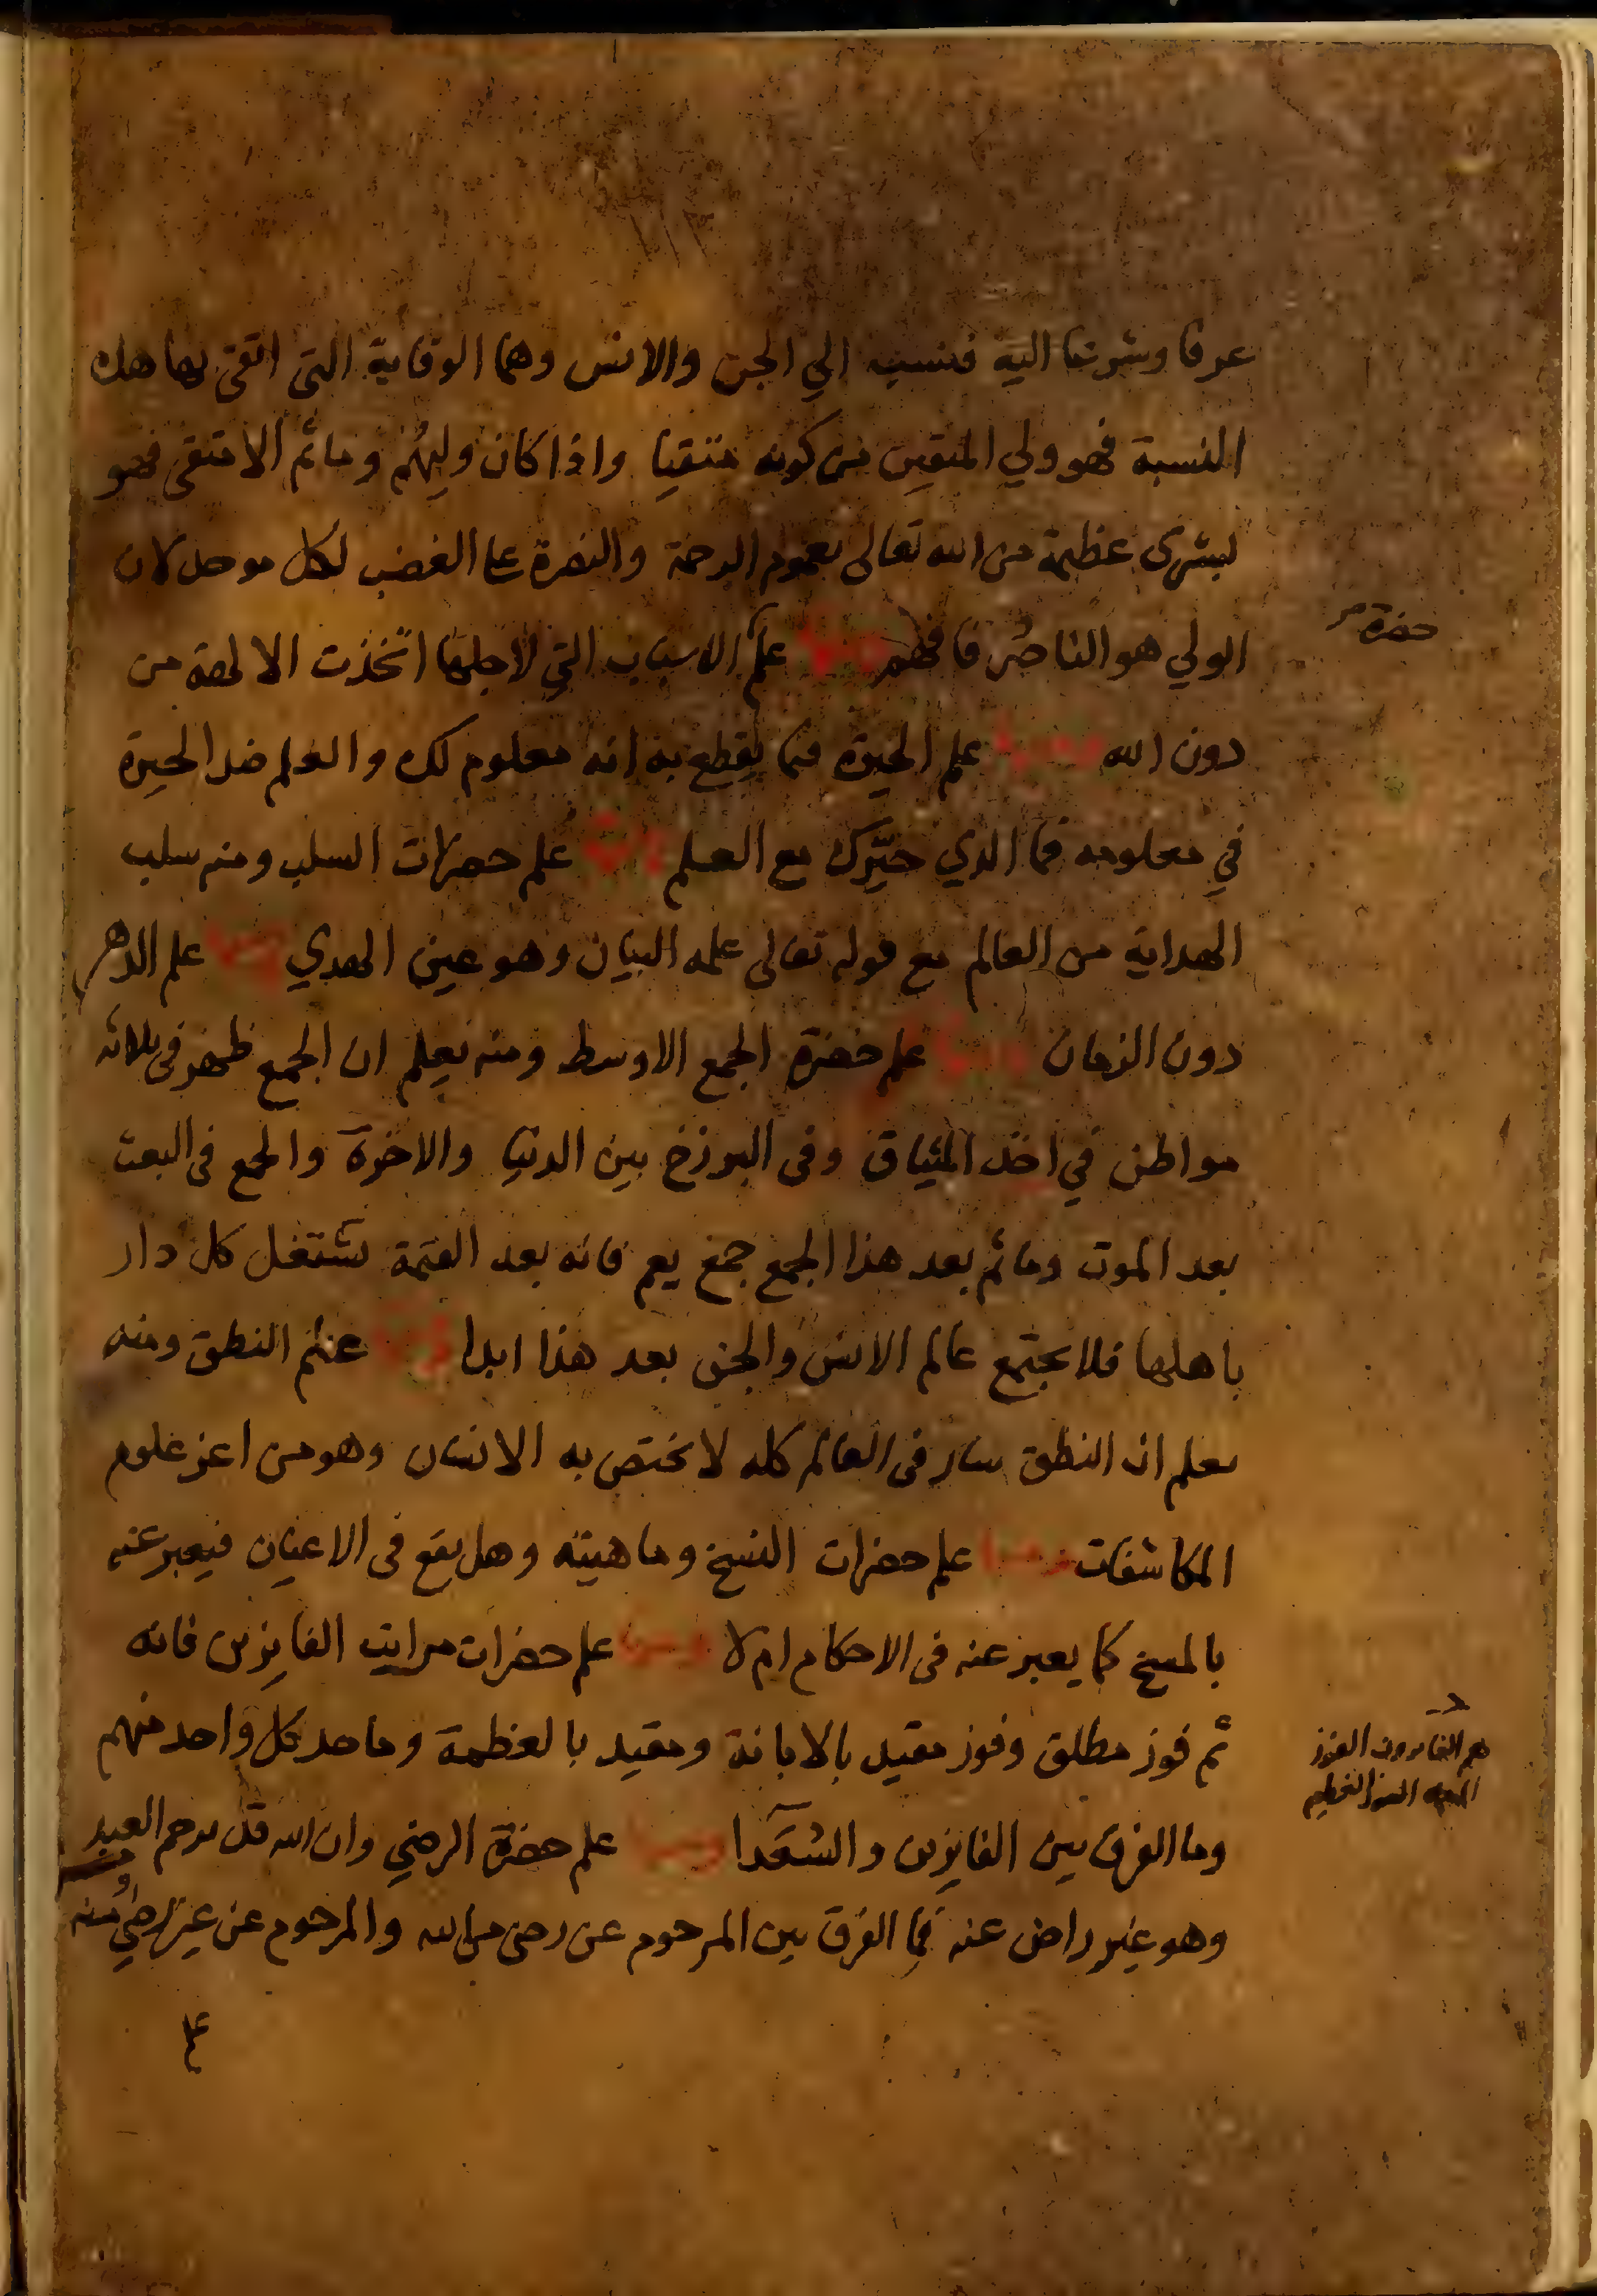 عرفا وشرعا اليه فنسب الي الجن والانس وهما الوقاية التى اتقى بها هذه
النسبة فهو ولي المتقين من كونه متقيا واذا كان وليهم وما ثم الا متقى فهو
بشرى عظيمة من الله تعالى بعموم الرحمة والنصرة على الغضب لكل موحد لان
الولي هو الناصر فافهم ومنها علم الاسباب التي لاجلها اتخذت الالهة من
حضرة
دون الله ومنها علم الحيرة فيما يقطع به انه معلوم لك والعلم ضد الحيرة
في معلومه فما الذي حيرك مع العلم ومنها علم حضرات السلب ومنه سلب
الهداية من العالم مع قوله تعالى علمه البيان وهو عين الهدي ومنها علم الدهر
دون الزمان ومنها علم حضرة الجمع الاوسط ومنه يعلم ان الجمع ظهر فى ثلاثة
مواطن في اخذ الميثاق وفى البرزخ بين الدنيا والاخرة والجمع فى البعث
بعد الموت وما ثم بعد هذا الجمع جمع يعم فانه بعد القيمة تشتغل كل دار
باهلها فلا يجتمع عالم الانس والجن بعد هذا ابدا ومنها علم النطق ومنه
يعلم ان النطق سار فى العالم كله لا يختص به الانسان وهو من اعز علوم
المكاشفات ومنها علم حضرات النسخ وماهيته وهل يقع فى الاعيان فيعبر عنه
بالمسخ كما يعبر عنه فى الاحكام ام لا ومنها علم حضرات مراتب الفايزين فانه
ثم فوز مطلق وفوز مقيد بالابانة ومقيد بالعظمة وما حد كل واحد منهم
هم الفايزون الفوز
المبين الفوز العظيم
وما الفرق بين الفايزين والسعدا ومنها علم حضرة الرضي وان الله قد يرحم العبد
وهو غير راض عنه فما الفرق بين المرحوم عن رضى من الله والمرحوم عن غير رضي منه
علم